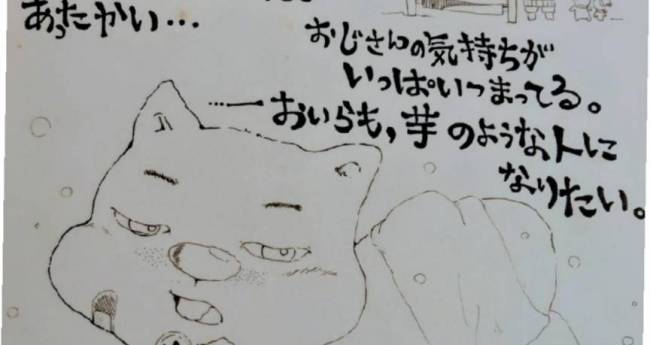 あったかい…
おじさんの気持ちが
いっぱいつまってる。
…ーおいらも、芋のような人に
なりたい。